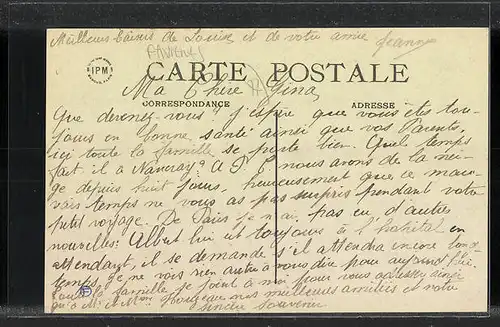 Meilleurs baisers de Louise et de votre amie Jeanne
IPM
CARTE POSTALE
Ma Chère Gina
CORRESPONDANCE
ADRESSE
Que devenez-vous? J'espère que vous êtes tou-
jours en bonne santé ainsi que vos Parents,
ici toute la famille se porte bien. Quel temps
fait il à Nancray? A nous avons de la nei-
ge depuis huit jours, heureusement que ce mau-
vais temps ne vous a pas surpris pendant votre
petit voyage. De Paris je n'ai pas eu d'autres
nouvelles: Albert lui est toujours à l'hôpital en
attendant, il se demande s'il attendra encore long-
temps. Je ne vois rien autre à vous dire pour aujourd'hui
toute la famille se joint à moi pour vous adresser ainsi
qu'à M. et Mme nos meilleures amitiés et notre
sincère souvenir